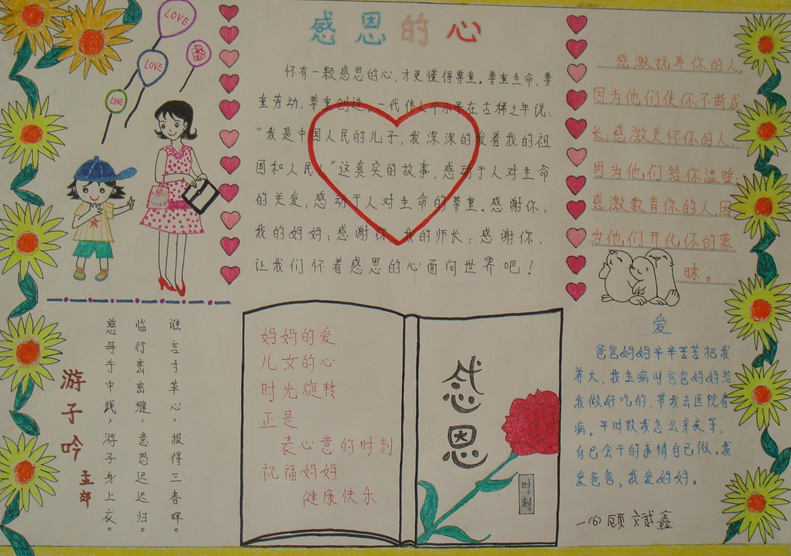 LOVE
LOVE
LOVE
感恩的心
怀有一颗感恩的心，才更懂得尊重。尊重生命，尊
重劳动，尊重创造。一代伟人邓小平在古稀之年说：
“我是中国人民的儿子，我深深的爱着我的祖
国和人民！”这真实的故事，感动于人对生命
的关爱，感动于人对生命的尊重。感谢你，
我的妈妈；感谢你，我的师长；感谢你，
让我们怀着感恩的心面向世界吧！
感激抚养你的人，
因为他们使你不断成
长；感激关怀你的人，
因为他们给你温暖；
感激教育你的人，因
为他们开化你的蒙
昧。
游子吟
慈母手中线，游子身上衣。
临行密密缝，意恐迟迟归。
谁言寸草心，报得三春晖。
妈妈的爱
儿女的心
时光旋转
正是
表心意的时刻
祝福妈妈
健康快乐
感恩
时刻
爱
爸爸妈妈辛辛苦苦把我
养大，我生病时爸爸妈妈给
我做好吃的，带我去医院看
病。平时教我怎么亲友等，
自己会干的事情自己做。我
爱爸爸，我爱妈妈。
顾斌鑫